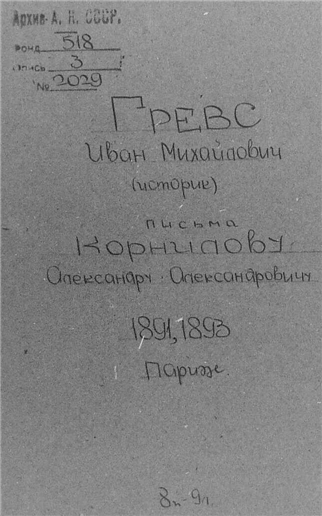 Архив А. Н. СССР.
Фонд 518
опись 3
№ 2029
ГРЕВС
Иван Михайлович
(историк)
письма
Корнилову
Александру Александровичу
1891, 1893
Париж.
8п-9л